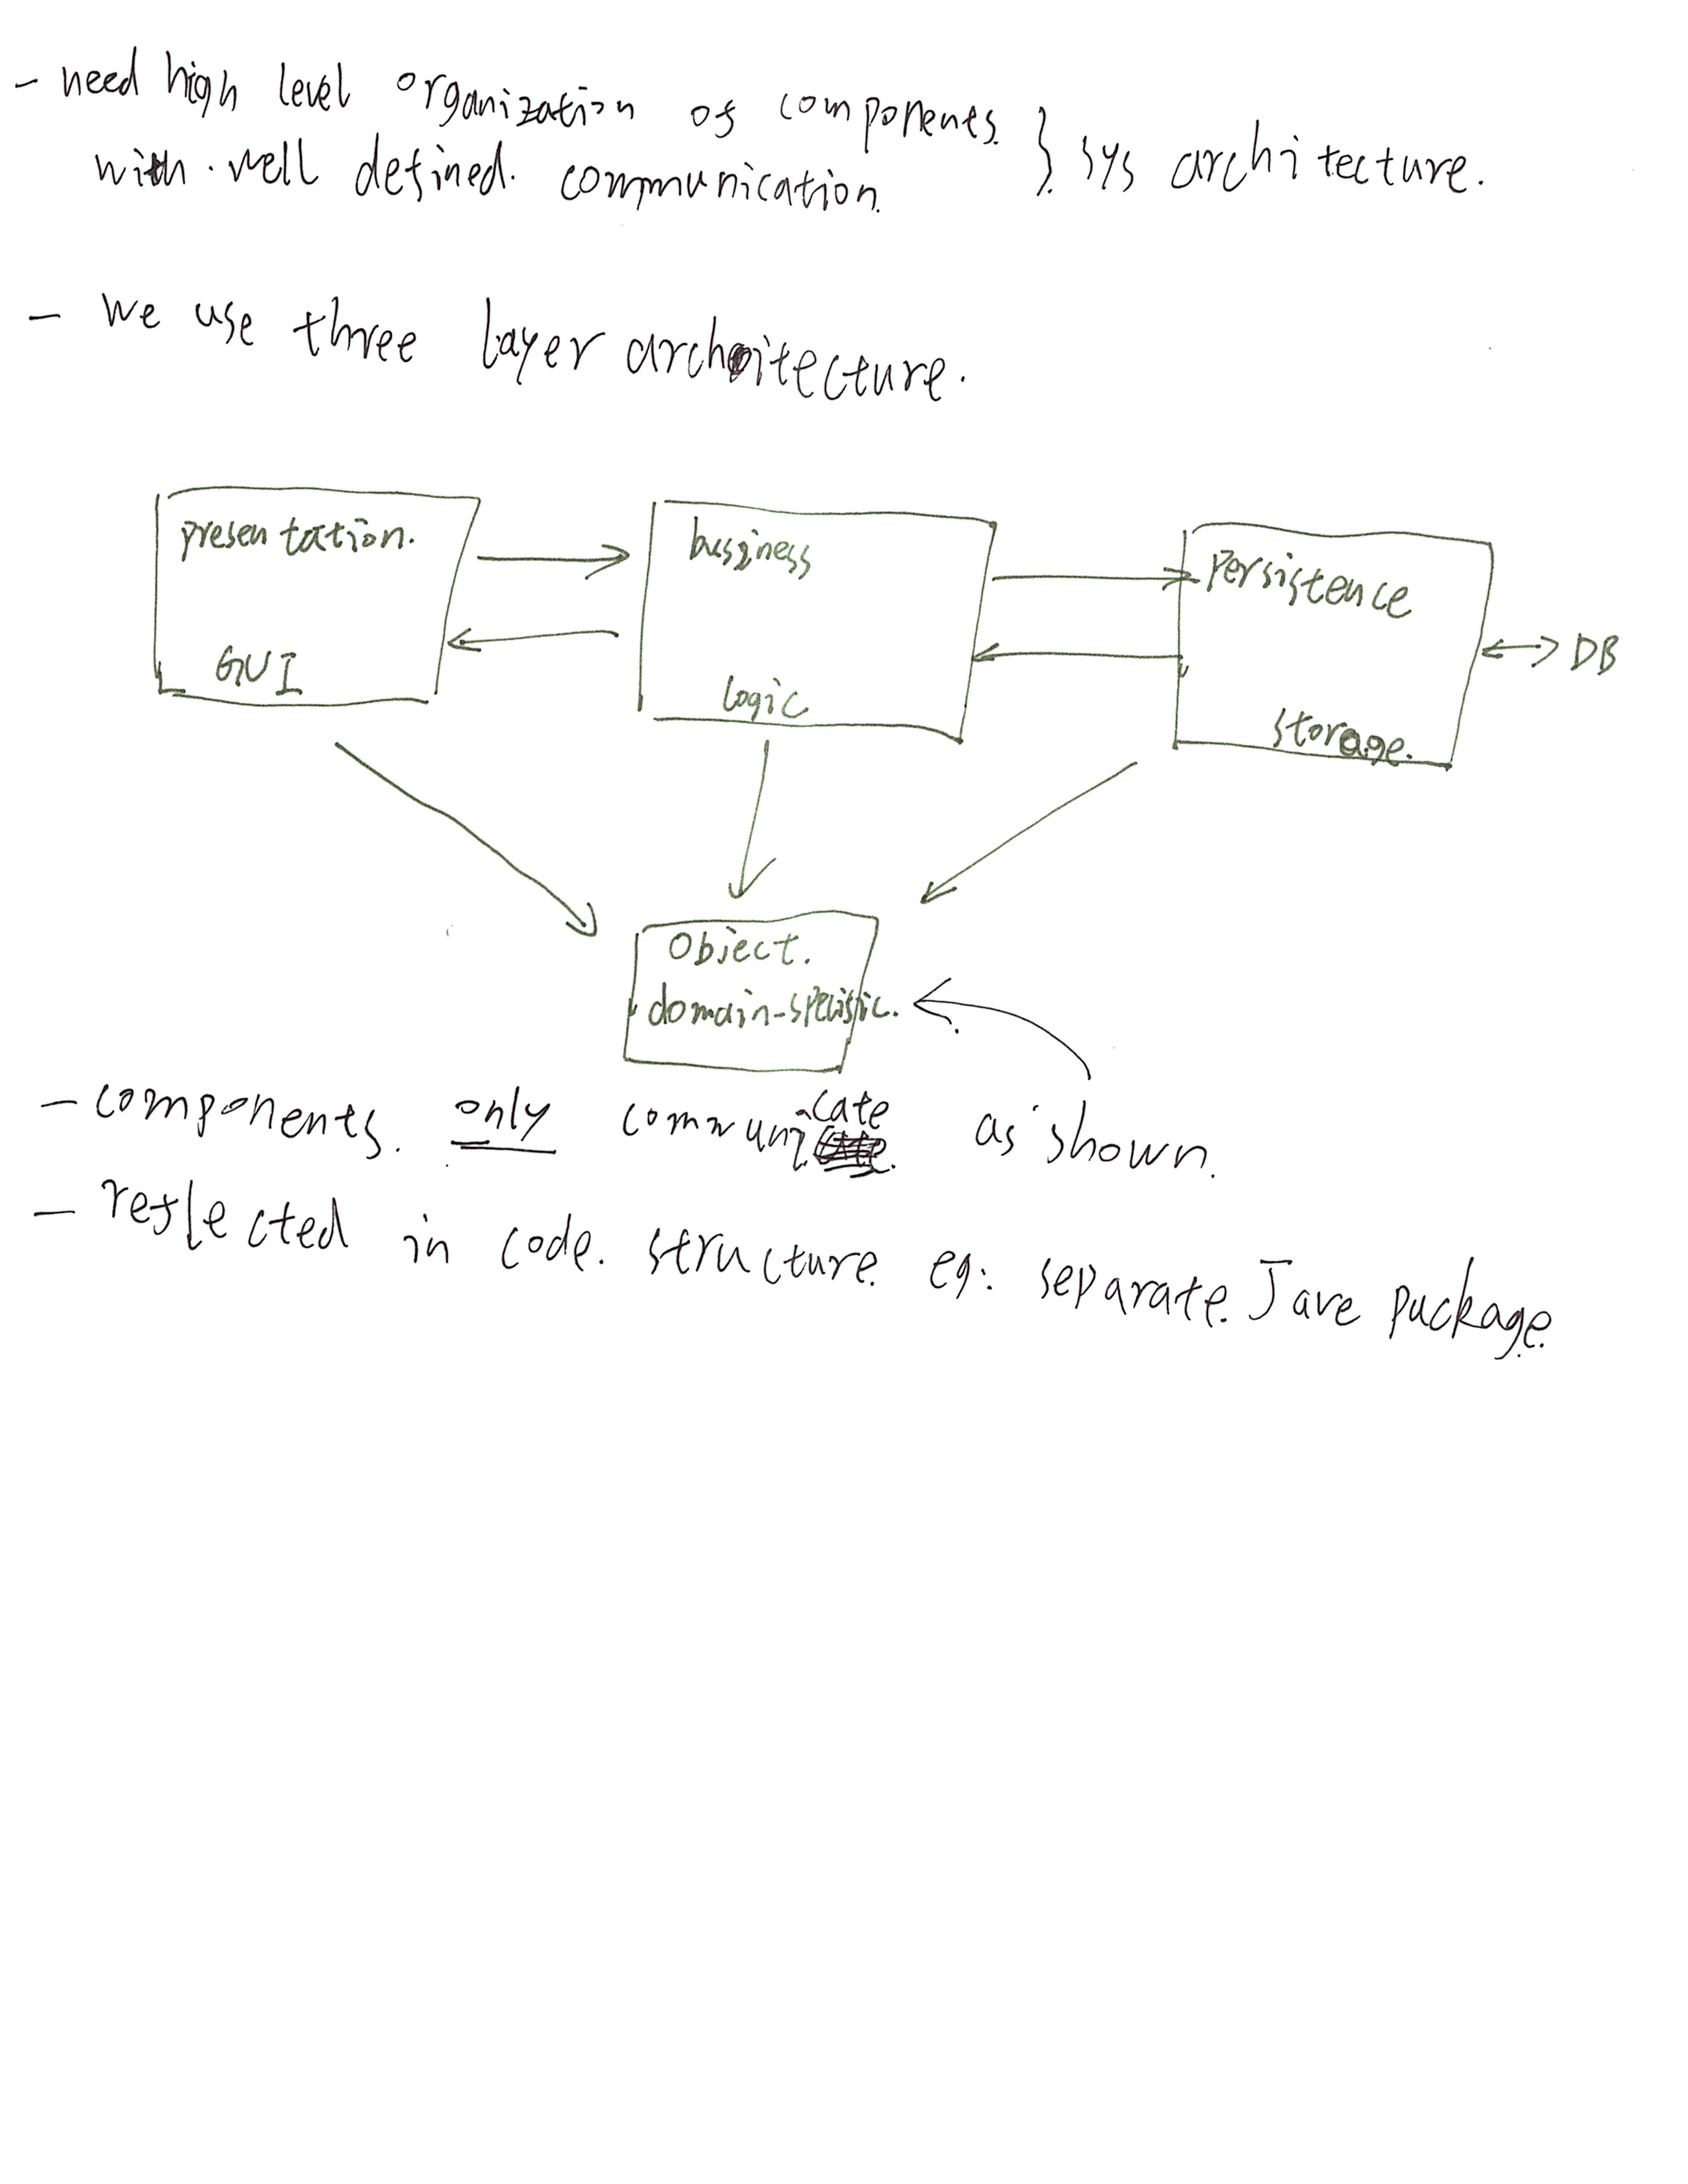 - need high level organization of components. } sys architecture.
with well defined. communication.
- we use three layer architecture.
presentation.
GUI
business
logic
Persistence
storage.
DB
Object.
domain-specific.
- components. only communicate as shown.
- reflected in code. structure. eg: separate. Jave puckage.